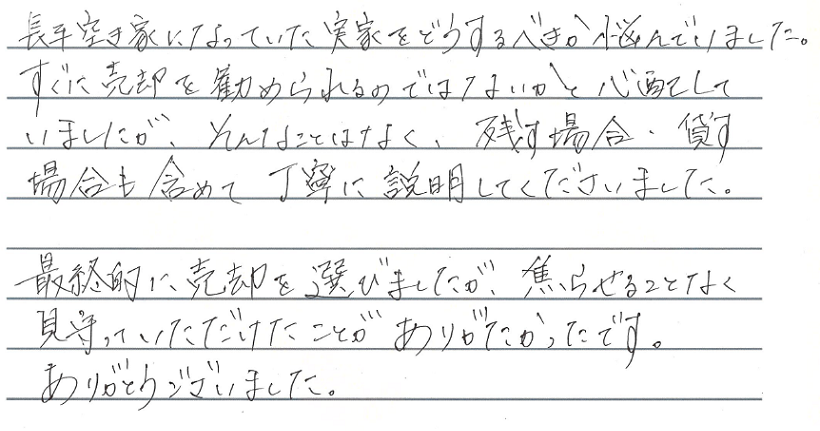 長年空き家になっていた実家をどうするべきか悩んでいました。
すぐに売却を勧められるのではないかと心配して
いましたが、そんなことはなく、残す場合・貸す
場合も含めて丁寧に説明してくださいました。
最終的に売却を選びましたが、焦らせることなく
見守っていただけたことがありがたかったです。
ありがとうございました。